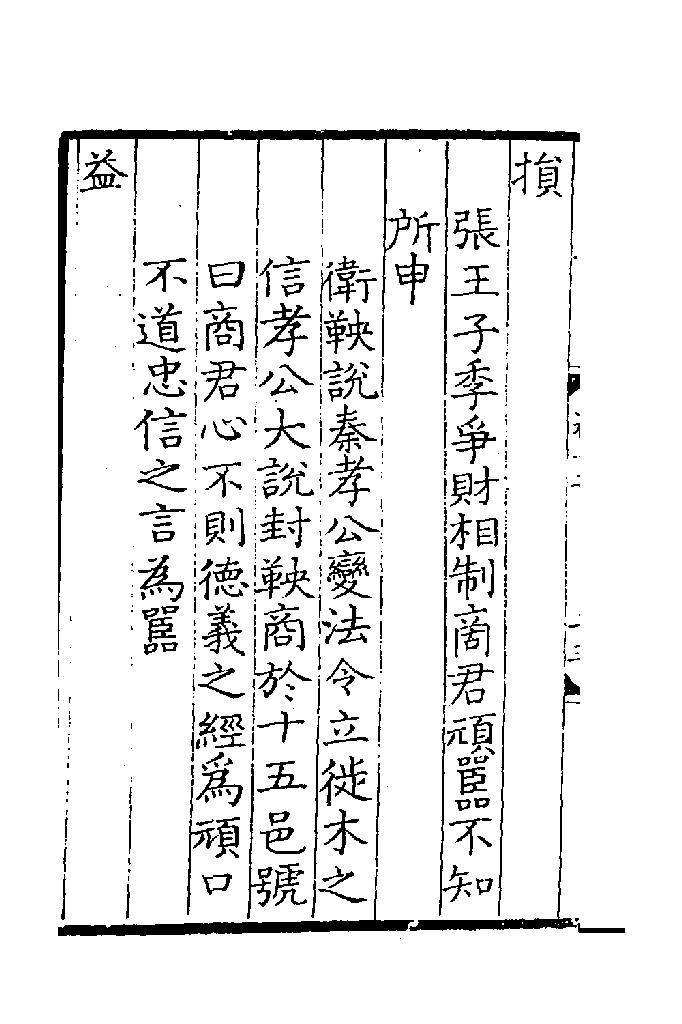 損
張王子季爭財相制商君頑嚚不知
所申
衛鞅說秦孝公變法令立徙木之
信孝公大說封鞅商於十五邑號
曰商君心不則德義之經爲頑口
不道忠信之言為嚚
益